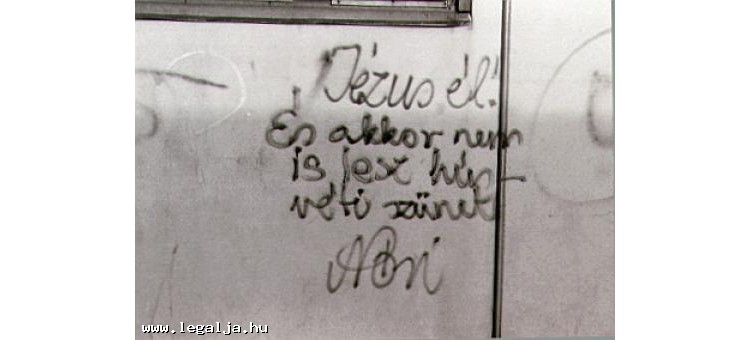 Jézus él!
És akkor nem
is lesz hús-
véti szünet
www.legalja.hu